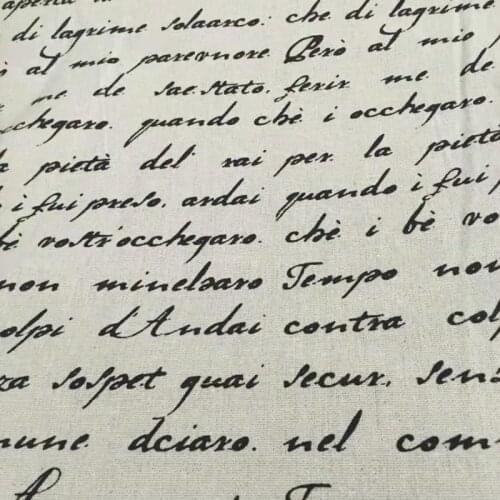 di lagrime solaarco: che di lagrime
al mio parevuore. Però al mio
me de sae stato. ferir me de
chegaro. quando chè i occhegaro.
pietà del rai per. la pietà
i fui preso. ardai quando i fui
bè vostr'occhegaro. chè i bè vo
non minelsaro Tempo non
olpi d'Andai contra colp
za sospet quai secur. senz
mune. dciaro. nel com